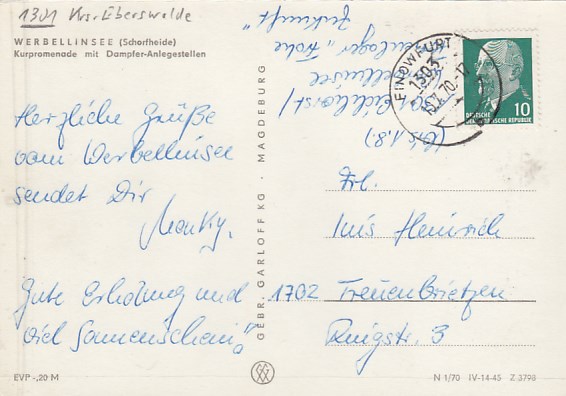 1301 Krs. Eberswalde
WERBELLINSEE (Schorfheide)
Kurpromenade mit Dampfer-Anlegestellen
Herzliche Grüße
vom Werbellinsee
sendet Dir
Gute Erholung und
viel Sonnenschein"
EVP -,20 M
GEBR. GARLOFF KG · MAGDEBURG
Zukunft"
"Frohe
(bis 1.8.)
FINOWFURT
1303
.70.-17
10
DEUTSCHE
DEMOKRATISCHE REPUBLIK
Frl.
Inis Heinrich
1702 Treuenbrietzen
3
N 1/70 IV-14-45 Z 3798